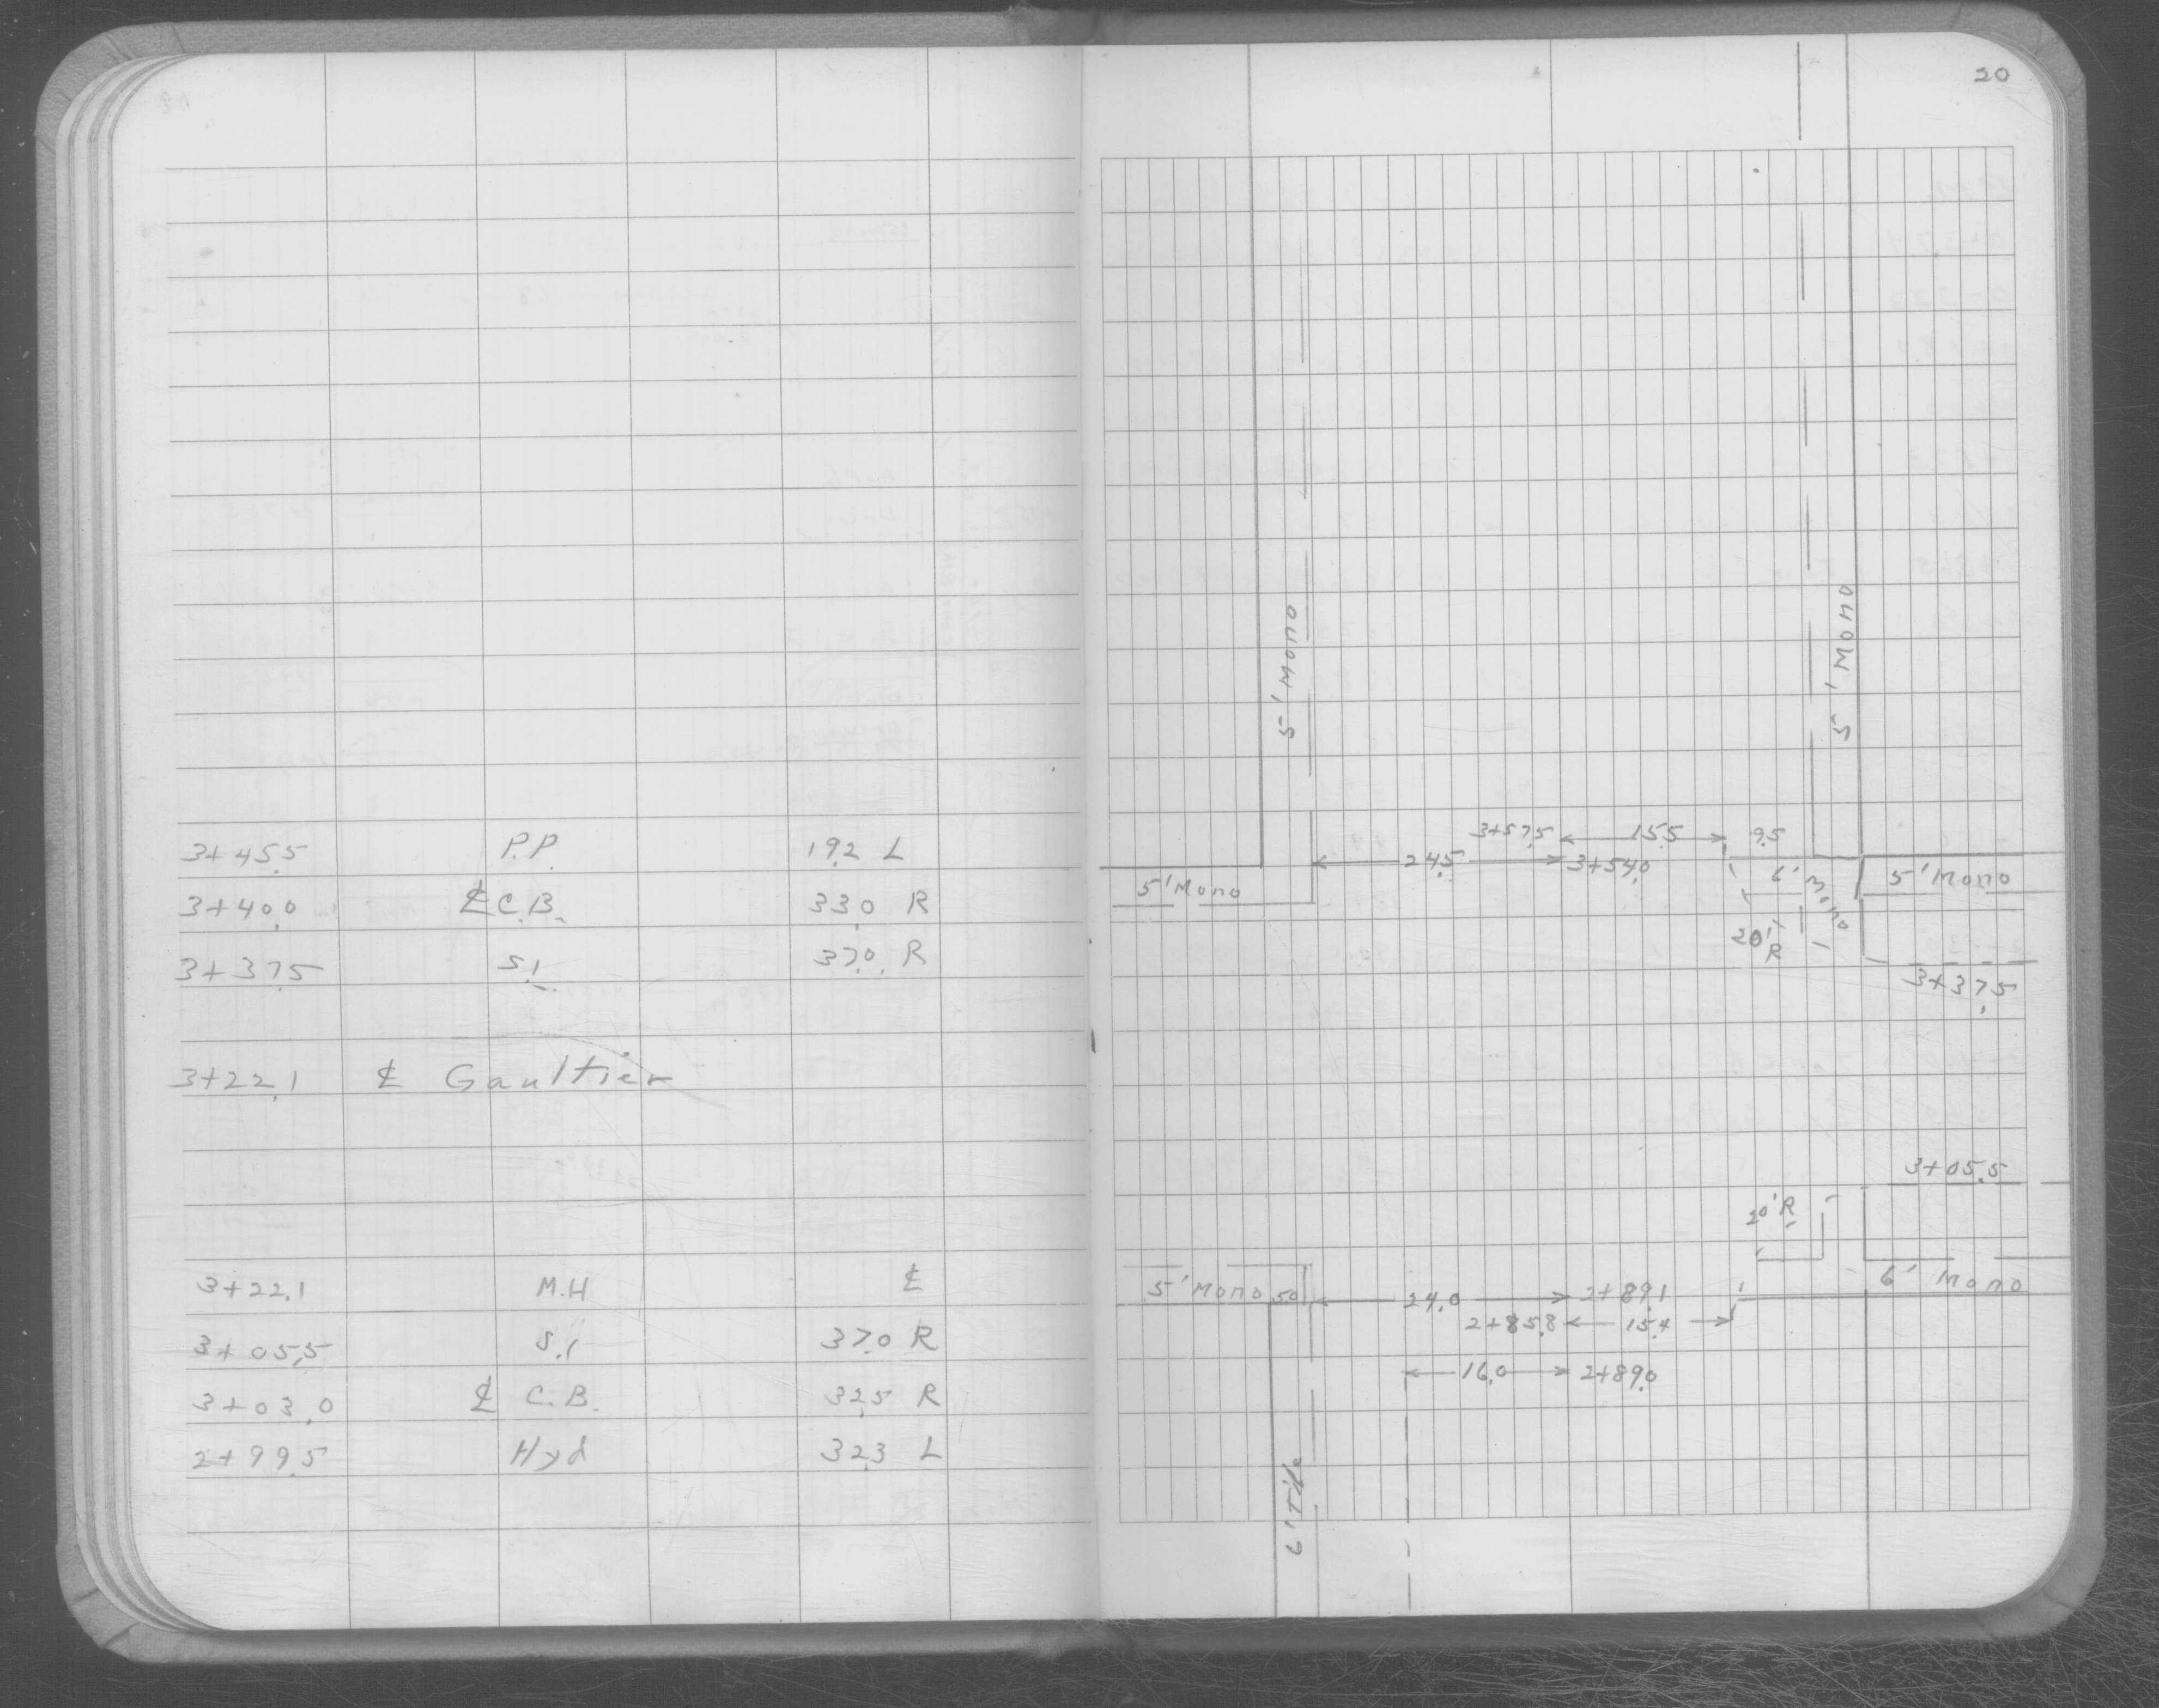 3+45.5 P.P. 19.2 L
3+40.0 ℄ C.B. 33.0 R
3+37.5 S.I. 37.0 R
3+22.1 ℄ Gaultier
3+22.1 M.H ℄
3+05.5 S.I 37.0 R
3+03.0 ℄ C.B. 32.5 R
2+99.5 Hyd 32.3 L
20
5' Mono
5' Mono
3+57.5 15.5 9.5
24.5 3+54.0
5' Mono
6' Mono
5' Mono
20' R
3+37.5
3+05.5
20' R
5' Mono 5.0 24.0 2+89.1
6' Mono
2+85.8 15.4
16.0 2+89.0
6' Tile